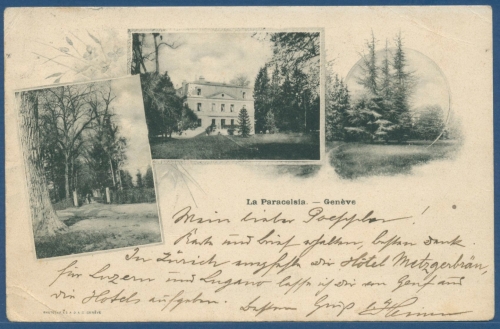 La Paracelsia. — Genève
Mein lieber
Karte und Brief erhalten, besten Dank.
In Zürich empfehle die Hôtel Metzgerbräu,
für Luzern und Lugano lasse ich die von Genf aus
die Hotels aufgeben.
Besten Gruß